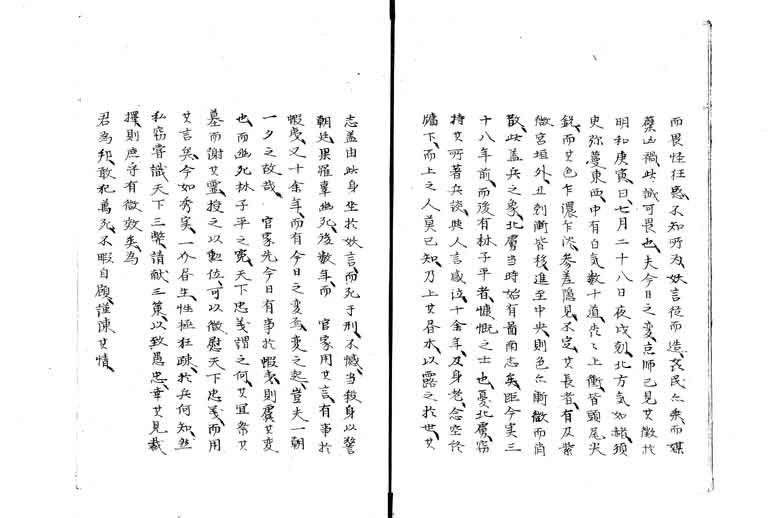 而畏怪狂惑不知所为妖言從而造姦民亦乘而媒
蘖凶禍此誠可畏也夫今日之変京師已見其徴代
明和庚寅曰七月二十八日夜戌刻北方気如赭須
史弥蔓東西中有白気数十道炎々上衝皆頭尾尖
鋭而其色乍濃乍淡参差隠見不定其長者有及紫
微宮垣外丑刻漸皆移進至中央則色亦漸微而尚
散此蓋兵之象北虜当時始有啚南志矣距今実三
十八年前而後有林子平者慷慨之士也憂北虜窃
持其所著兵談與人言感泣十余年及身老念空於
牖下而上之人莫已知乃上其吾水以露之於世其
志蓋由此身坐於妖言而死于刑不憾当殺身以警
朝廷果罹辜幽死後数年而 官家用其言有事於
蝦夷又十余年而有今日之変焉変之起豈夫一朝
一夕之故哉 官家先今日有事於蝦夷則虞其変
也而幽死林子平之寃天下忠義謂之何其宜祭其
墓而謝其霊授之以勲位可以微慰天下忠義而用
其言矣今如秀実一介書生性極狂疎於兵何知然
私窃審識天下三弊請献三策以致愚忠幸其見裁
擇則庶乎有微效矣為
君為邦敢犯萬死不暇自顧謹陳其情